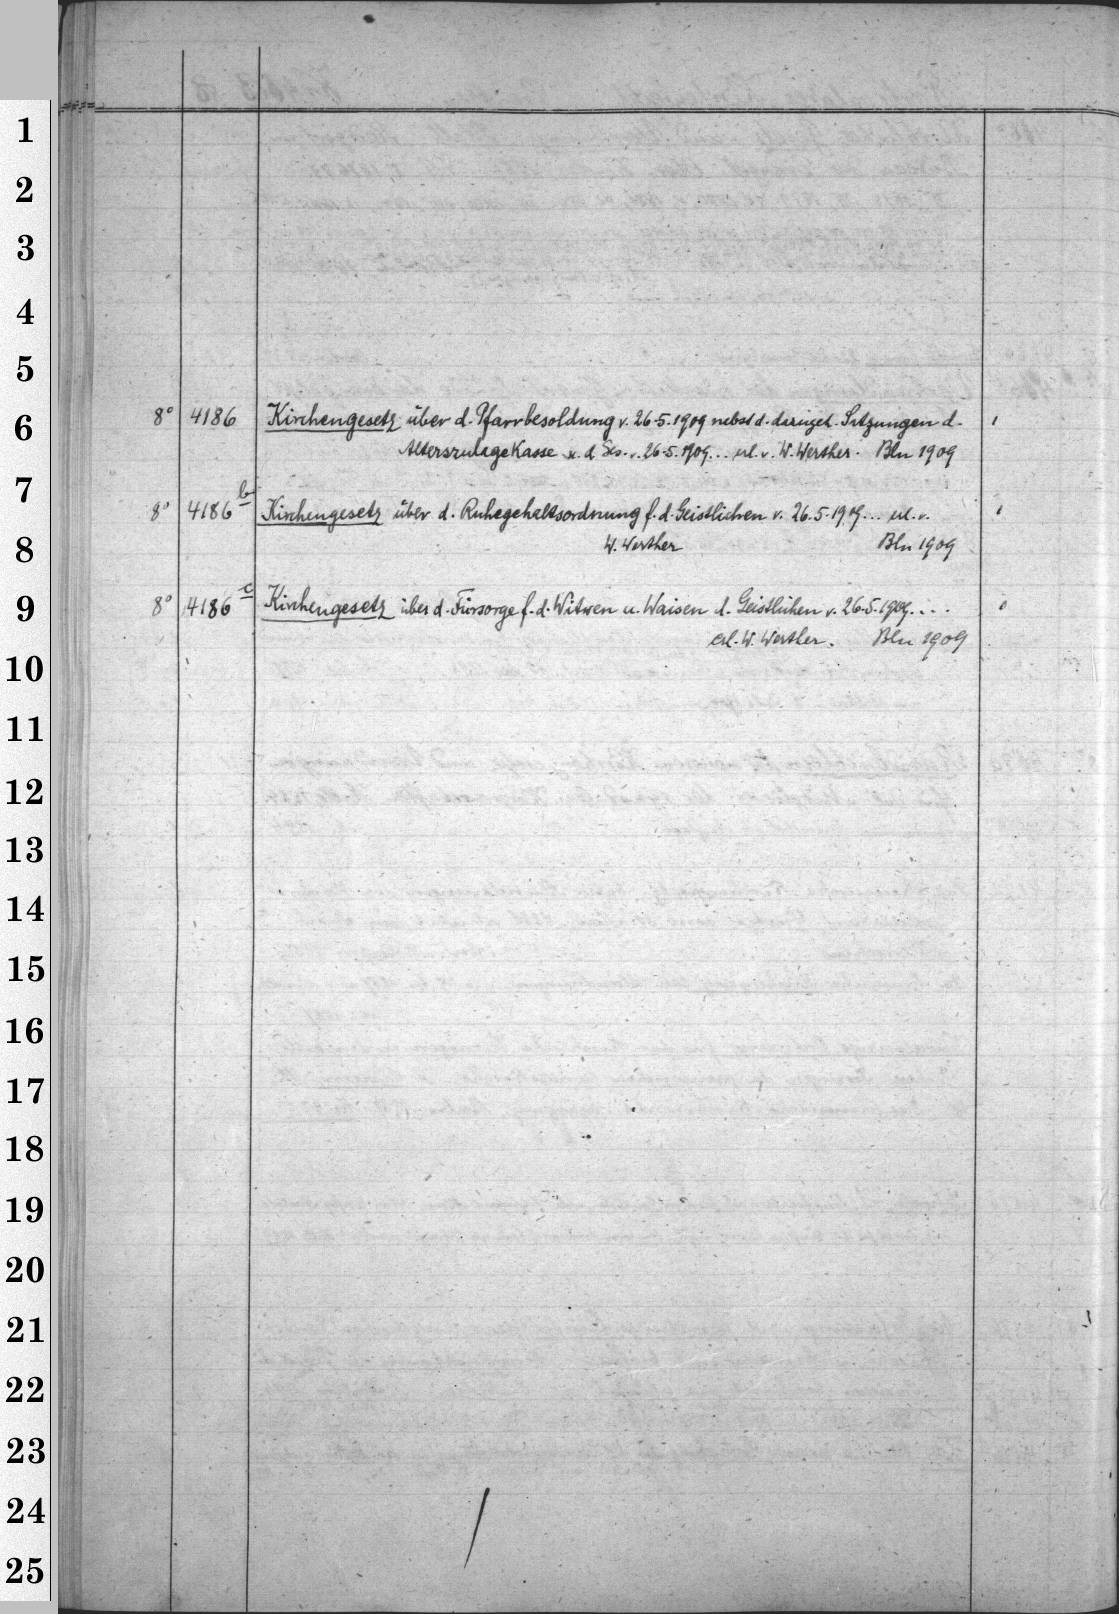 1
2
3
4
5
6
8° 4186 Kirchengesetz über d. Pfarrbesoldung v. 26.5.1909 nebst d. Satzungen d. 1
Alterszulagekasse u. d Ges. v. 26.5.1909... erl. v. W. Werther. Bln 1909
7
8° 4186 b Kirchengesetz über d. Ruhegehaltsordnung f. d. Geistlichen v. 26.5.1909... erl. v.
8
W. Werther Bln 1909
9
8° 4186 c Kirchengesetz über d. Fürsorge f. d. Witwen u. Waisen d. Geistlichen v. 26.5.1909....
erl. W. Werther. Bln 1909
10
11
12
13
14
15
16
17
18
19
20
21
22
23
24
25